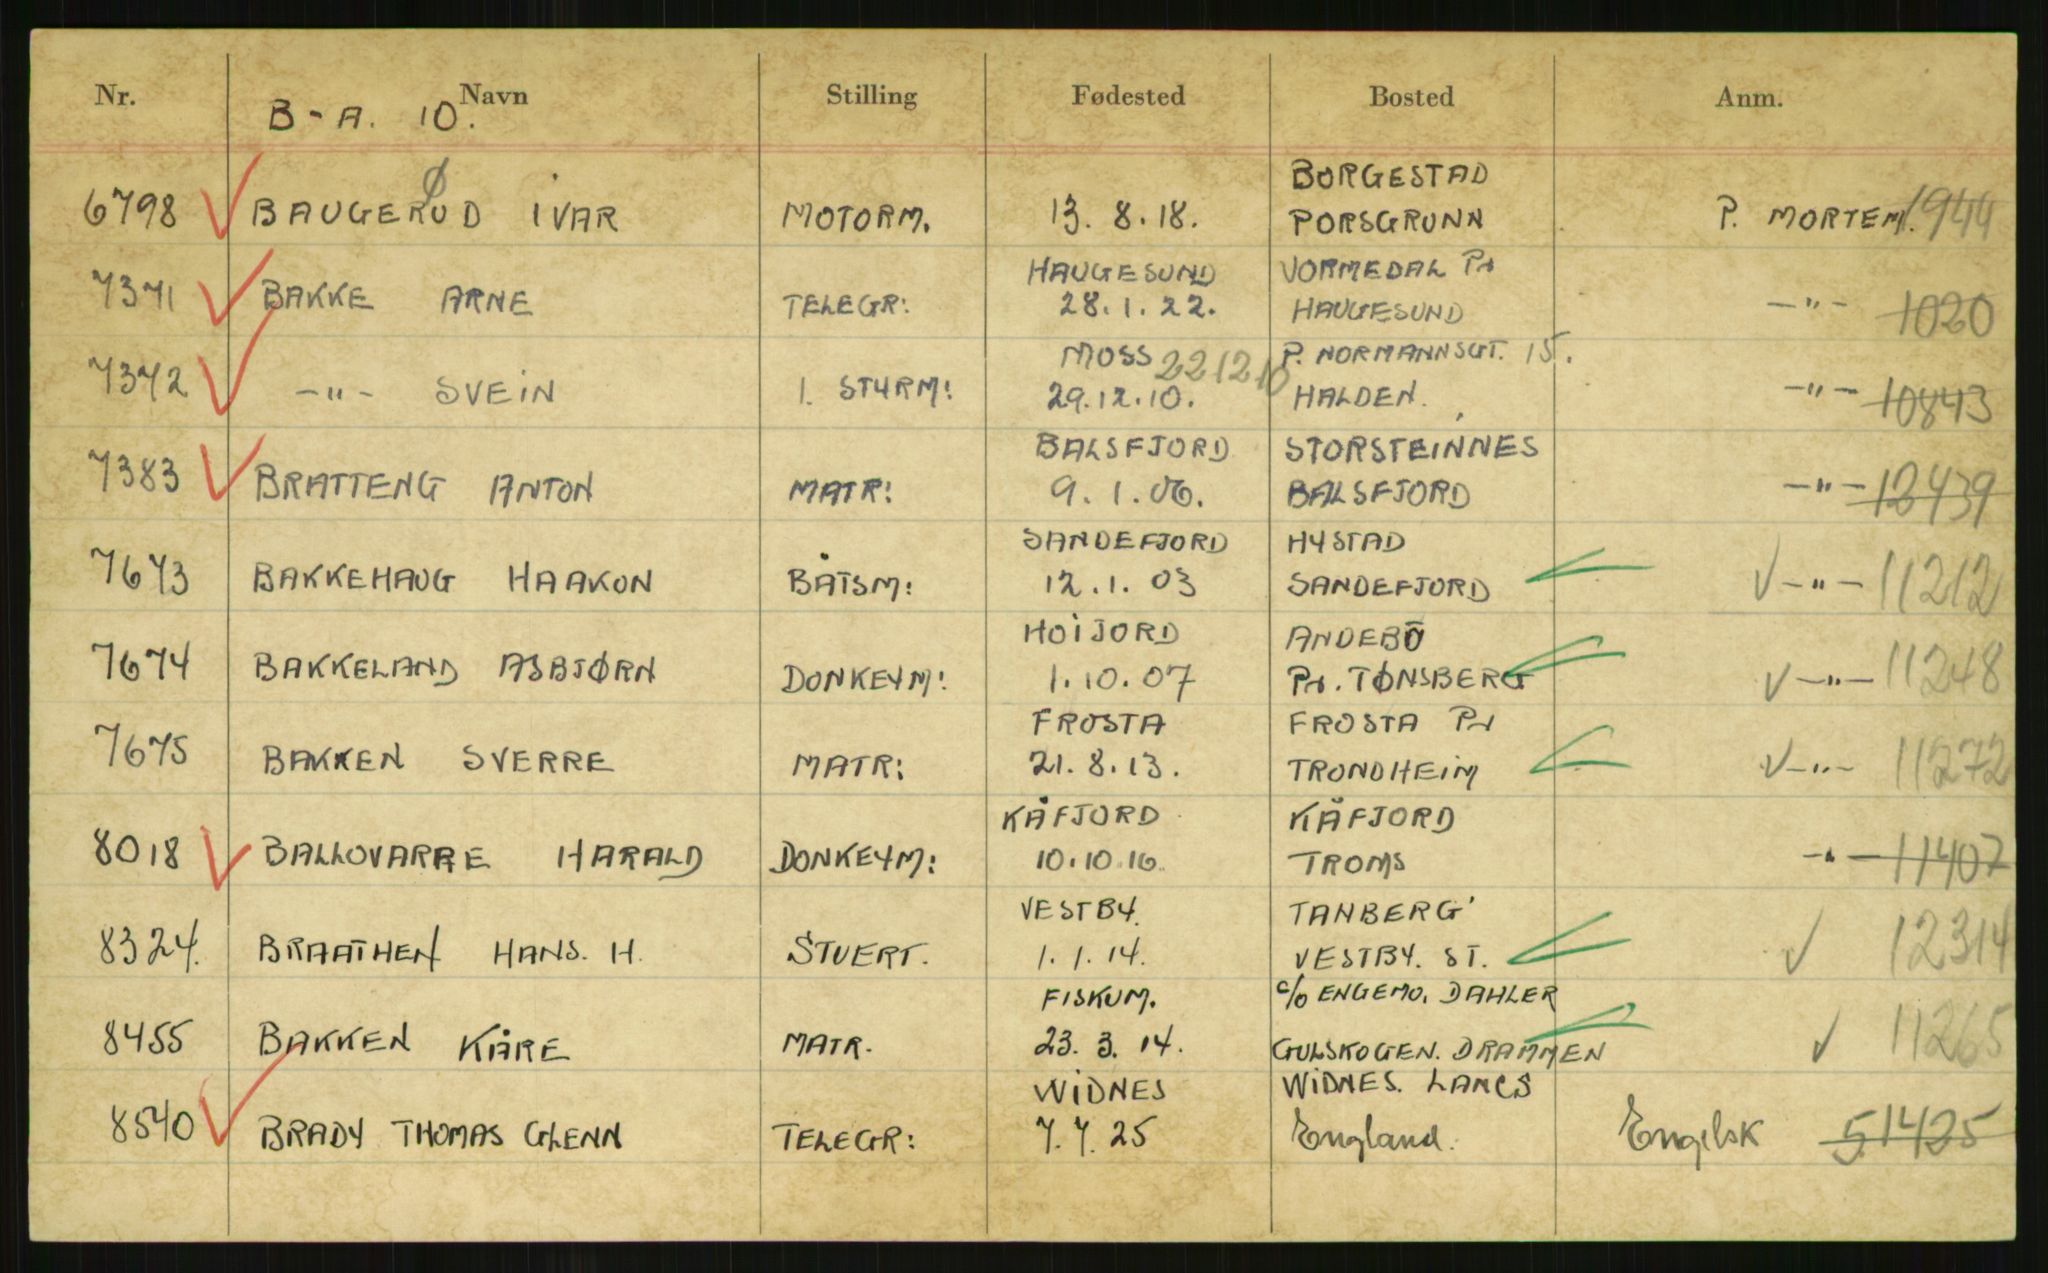 Nr. Navn Stilling Fødested Bosted Anm.
B-A. 10.
BORGESTAD
6798 BAUGERUD IVAR MOTORM. 13.8.18. PORSGRUNN P. MORTEM. 1944
Ø
HAUGESUND VORMEDAL Pr
7371 BAKKE ARNE TELEGR: 28.1.22. HAUGESUND -"- 1020
MOSS 221210 P. NORMANNSGT. 15.
7372 -"- SVEIN 1. STYRM: 29.12.10. HALDEN. -"- 10843
BALSFJORD STORSTEINNES
7383 BRATTENG ANTON MATR: 9.1.06. BALSFJORD -"- 12439
SANDEFJORD HYSTAD
7673 BAKKEHAUG HAAKON BÅTSM: 12.1.03 SANDEFJORD ✓ -"- 11212
HOIJORD ANDEBÖ
7674 BAKKELAND ASBJØRN DONKEYM: 1.10.07 Pr. TØNSBERG ✓ -"- 11248
FROSTA FROSTA Pr
7675 BAKKEN SVERRE MATR: 21.8.13. TRONDHEIM ✓ -"- 11272
KÅFJORD KÅFJORD
8018 BALLOVARRE HARALD DONKEYM: 10.10.16. TROMS -"- 11407
VESTBY. TANBERG'
8324. BRAATHEN HANS. H. STUERT. 1.1.14. VESTBY. ST. ✓ 12314
FISKUM. c/o ENGEMO. DAHLER
8455 BAKKEN KÅRE MATR. 23.3.14. GULSKOGEN. DRAMMEN ✓ 11265
WIDNES WIDNES. LANCS
8540 BRADY THOMAS GLENN TELEGR: 7.7.25 England. Engelsk 51425